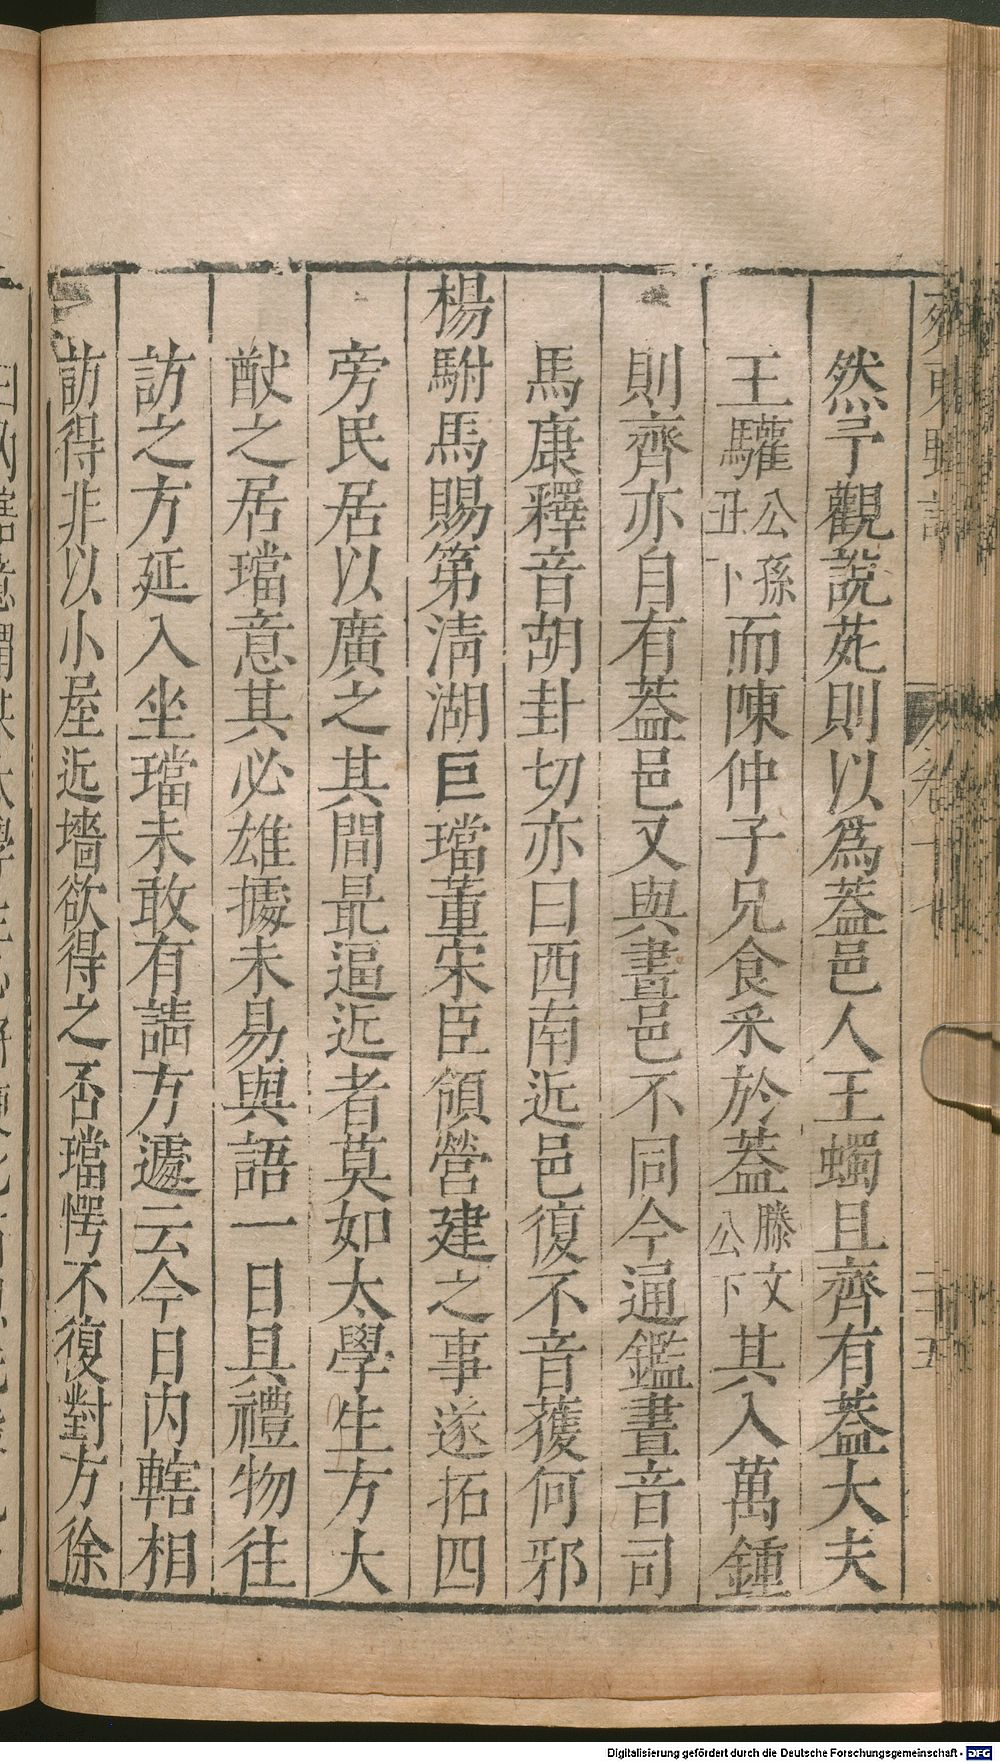 然予觀說苑則以為蓋邑人王蠋且齊有蓋大夫
王驩公孫丑下而陳仲子兄食采於蓋滕文公下其入萬鍾
則齊亦自有蓋邑又與晝邑不同今通鑑晝音司
馬康釋音胡卦切亦曰西南近邑復不音獲何邪
楊駙馬賜第清湖巨璫董宋臣領營建之事遂拓四
旁民居以廣之其間最逼近者莫如太學生方大
猷之居璫意其必雄據未易與語一日具禮物往
訪之方延入坐璫未敢有請方遽云今日內轄相
訪得非以小屋近墻欲得之否璫愕不復對方徐
Digitalisierung gefördert durch die Deutsche Forschungsgemeinschaft - DFG